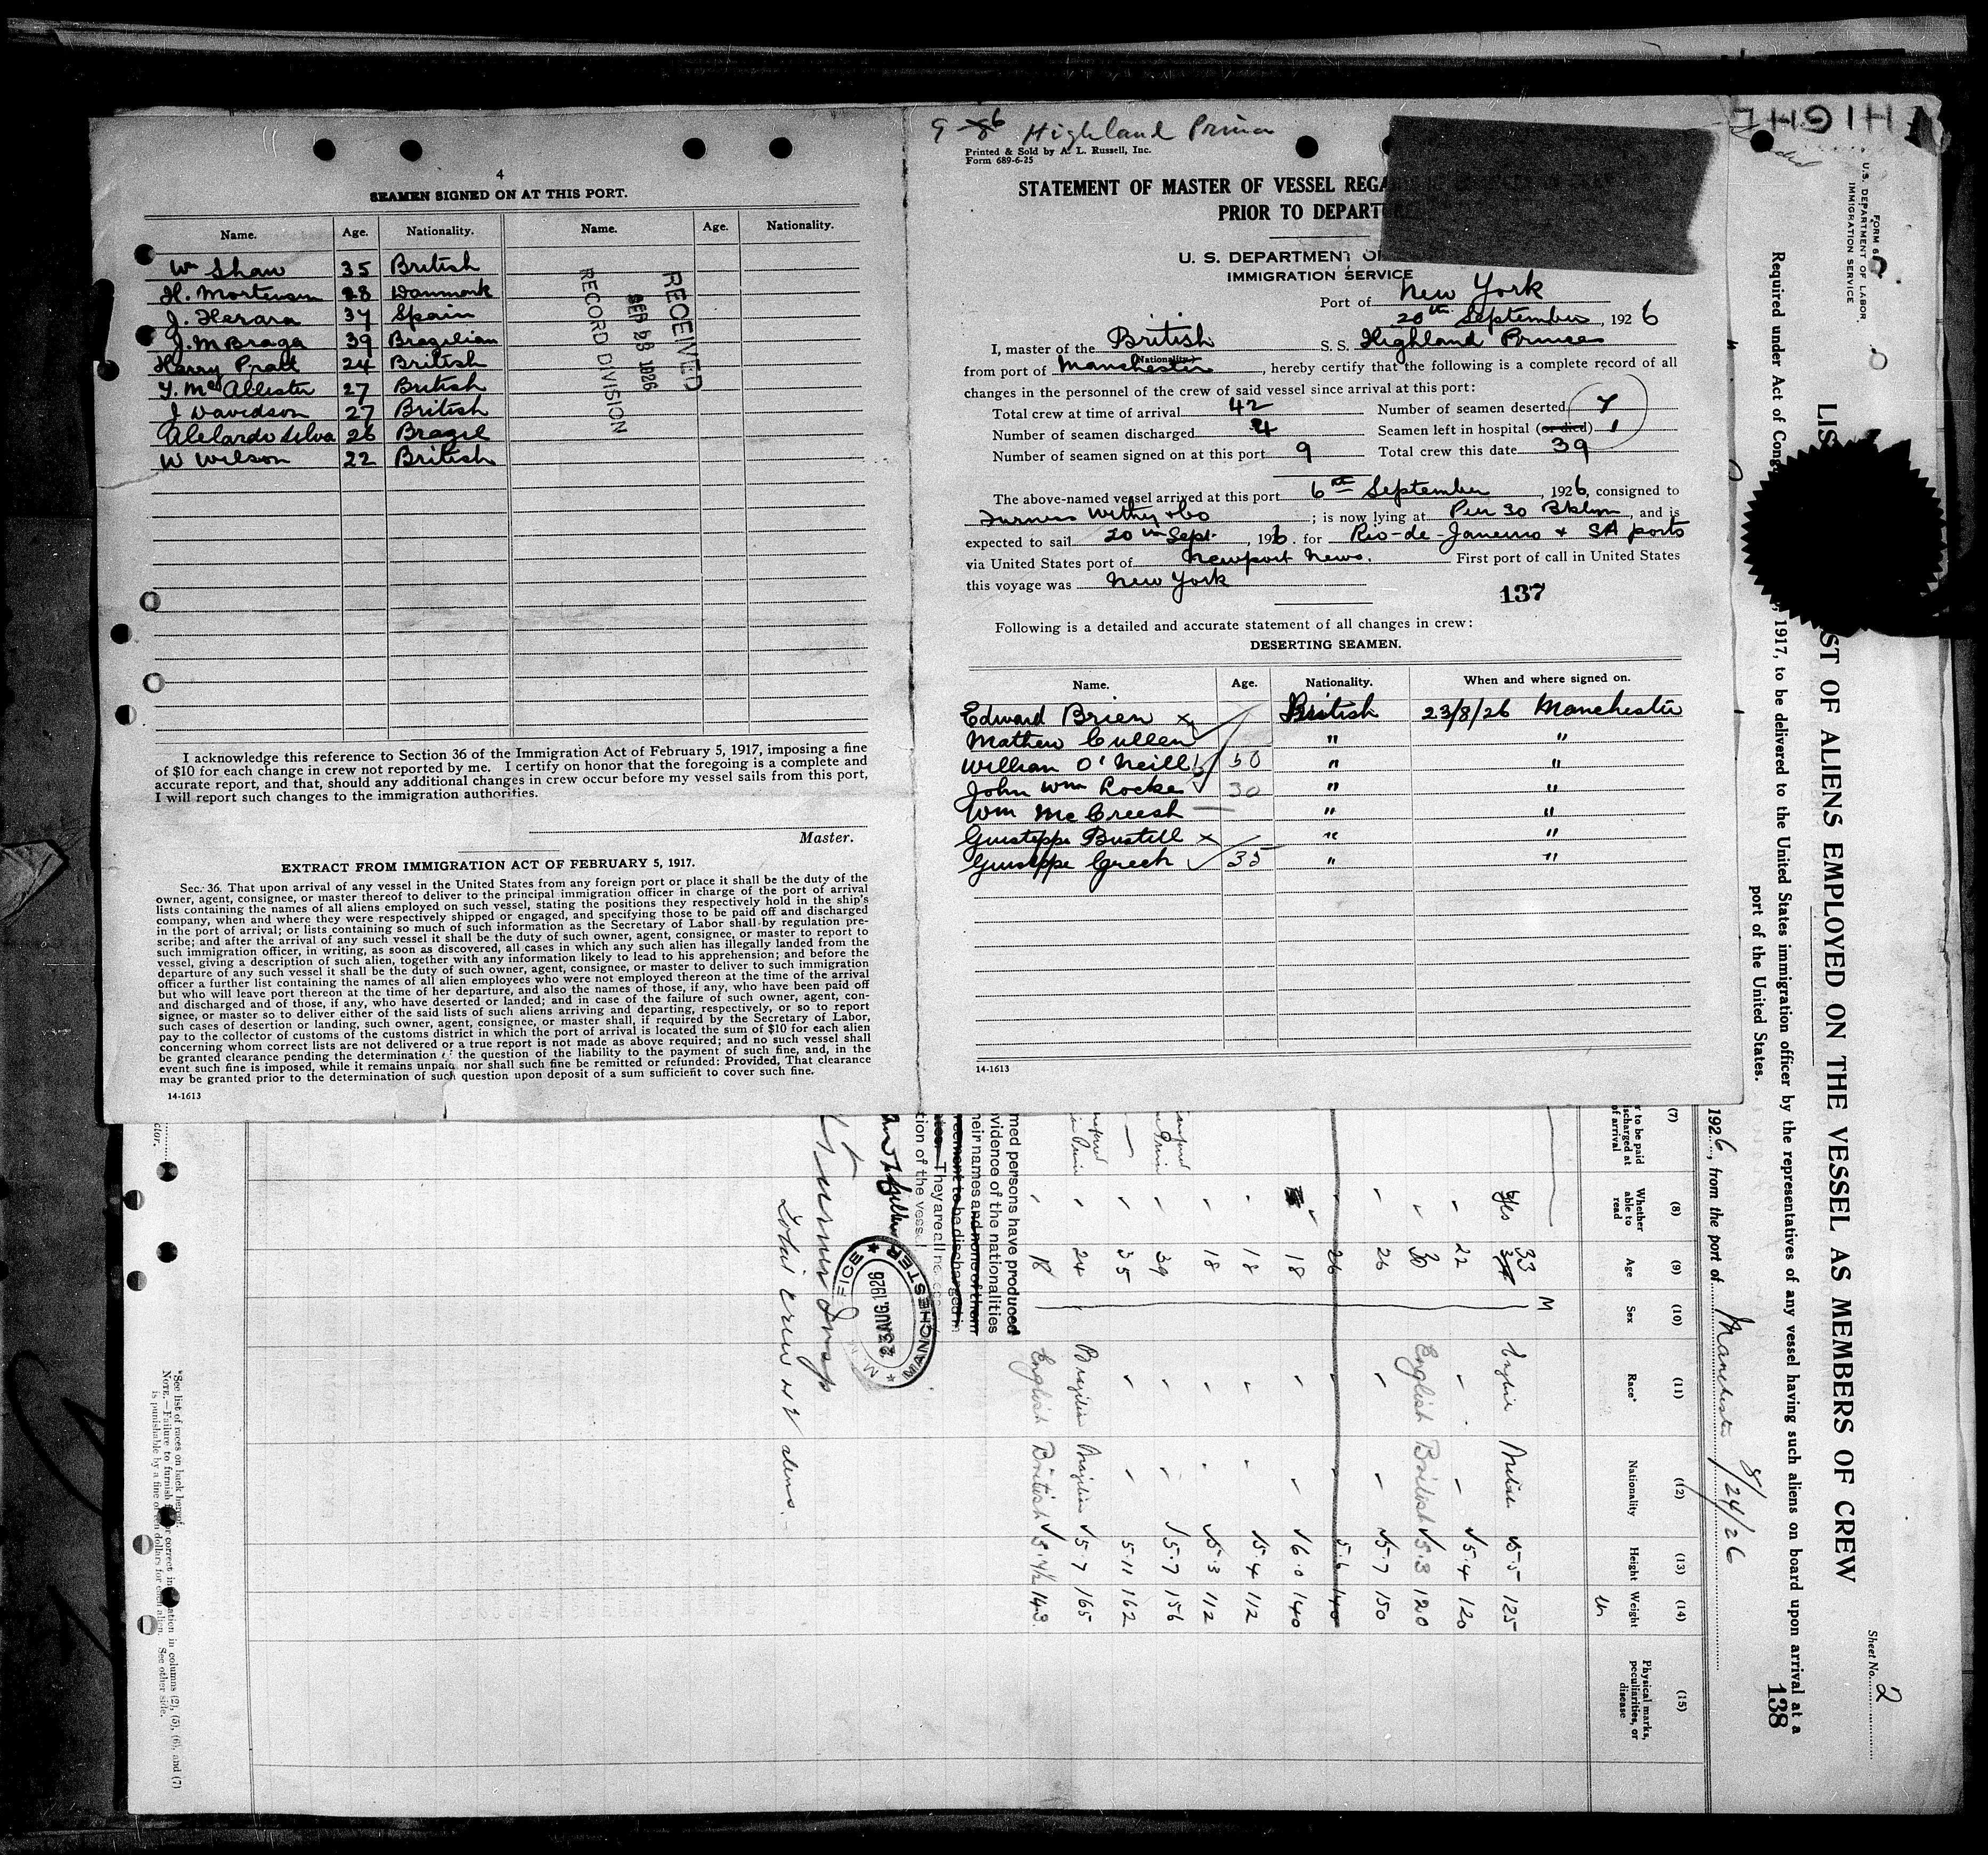 4
SEAMEN SIGNED ON AT THIS PORT.
Name. Age. Nationality. Name. Age. Nationality.
Wm Shaw 35 British
H. Mortensen 28 Danmark
J. Herara 37 Spain
J. M Braga 39 Brazilian
Harry Pratt 24 British
T. McAllister 27 British
J Davidson 27 British
Abelardo Silva 26 Brazil
W Wilson 22 British
RECEIVED
SEP 23 1926
RECORD DIVISION
I acknowledge this reference to Section 36 of the Immigration Act of February 5, 1917, imposing a fine
of $10 for each change in crew not reported by me. I certify on honor that the foregoing is a complete and
accurate report, and that, should any additional changes in crew occur before my vessel sails from this port,
I will report such changes to the immigration authorities.
Master.
EXTRACT FROM IMMIGRATION ACT OF FEBRUARY 5, 1917.
Sec. 36. That upon arrival of any vessel in the United States from any foreign port or place it shall be the duty of the
owner, agent, consignee, or master thereof to deliver to the principal immigration officer in charge of the port of arrival
lists containing the names of all aliens employed on such vessel, stating the positions they respectively hold in the ship's
company, when and where they were respectively shipped or engaged, and specifying those to be paid off and discharged
in the port of arrival; or lists containing so much of such information as the Secretary of Labor shall by regulation pre-
scribe; and after the arrival of any such vessel it shall be the duty of such owner, agent, consignee, or master to report to
such immigration officer, in writing, as soon as discovered, all cases in which any such alien has illegally landed from the
vessel, giving a description of such alien, together with any information likely to lead to his apprehension; and before the
departure of any such vessel it shall be the duty of such owner, agent, consignee, or master to deliver to such immigration
officer a further list containing the names of all alien employees who were not employed thereon at the time of the arrival
but who will leave port thereon at the time of her departure, and also the names of those, if any, who have been paid off
and discharged and of those, if any, who have deserted or landed; and in case of the failure of such owner, agent, con-
signee, or master so to deliver either of the said lists of such aliens arriving and departing, respectively, or so to report
such cases of desertion or landing, such owner, agent, consignee, or master shall, if required by the Secretary of Labor,
pay to the collector of customs of the customs district in which the port of arrival is located the sum of $10 for each alien
concerning whom correct lists are not delivered or a true report is not made as above required; and no such vessel shall
be granted clearance pending the determination of the question of the liability to the payment of such fine, and, in the
event such fine is imposed, while it remains unpaid nor shall such fine be remitted or refunded: Provided, That clearance
may be granted prior to the determination of such question upon deposit of a sum sufficient to cover such fine.
14-1613
9 Highland Prince
Printed & Sold by A. L. Russell, Inc.
Form 689-6-25
STATEMENT OF MASTER OF VESSEL REGA
PRIOR TO DEPARTURE
U. S. DEPARTMENT O
IMMIGRATION SERVICE
Port of New York
20th September, 1926
I, master of the British S. S. Highland Prince
(Nationality)
from port of Manchester, hereby certify that the following is a complete record of all
changes in the personnel of the crew of said vessel since arrival at this port:
Total crew at time of arrival 42 Number of seamen deserted 7
Number of seamen discharged 4 Seamen left in hospital (or died) 1
Number of seamen signed on at this port 9 Total crew this date 39
The above-named vessel arrived at this port 6th September, 1926, consigned to
Furness Withy & Co; is now lying at Pier 30 Bklyn, and is
expected to sail 20th Sept., 1926. for Rio-de-Janeiro & SA ports
via United States port of Newport News. First port of call in United States
this voyage was New York
137
Following is a detailed and accurate statement of all changes in crew:
DESERTING SEAMEN.
Name. Age. Nationality. When and where signed on.
Edward Brien x British 23/8/26 Manchester
Mathew Cullen " "
William O'Neill 50 " "
John Wm Locke 30 " "
Wm McCreesh " "
Guiseppe Bustell x " "
Guiseppe Grech 35 " "
14-1613
HIGHL
U. S. DEPARTMENT OF LABOR
IMMIGRATION SERVICE
Sheet No. 2
LIS ST OF ALIENS EMPLOYED ON THE VESSEL AS MEMBERS OF CREW
Required under Act of Cong , 1917, to be delivered to the United States immigration officer by the representatives of any vessel having such aliens on board upon arrival at a
port of the United States.
138
1926, from the port of Manchester 8/24/26
(7) (8) (9) (10) (11) (12) (13) (14) (15)
r to be paid
ischarged at
of arrival
Whether able to read
Age
Sex
Race*
Nationality
Height
Weight
Physical marks, peculiarities, or disease
M
Yes 33 English British 5.5 125
22 5.4 120
30 English British 5.3 120
26 5.7 150
26 5.6 140
18 6.0 140
18 5.4 112
18 5.3 112
39 5.7 156
35 5.11 162
24 Brazilian Brazilian 5.7 165
18 English British 5.7½ 143
med persons have produced
vidence of the nationalities
heir names and none of them
reement to be discharged in
They are all
tion of the vessel
MANCHESTER
23 AUG 1926
Total crew 42 aliens.
*See list of races on back hereof.
NOTE.—Failure to furnish or correct information in columns (2), (5), (6), and (7)
is punishable by a fine of ten dollars for each alien. See other side.